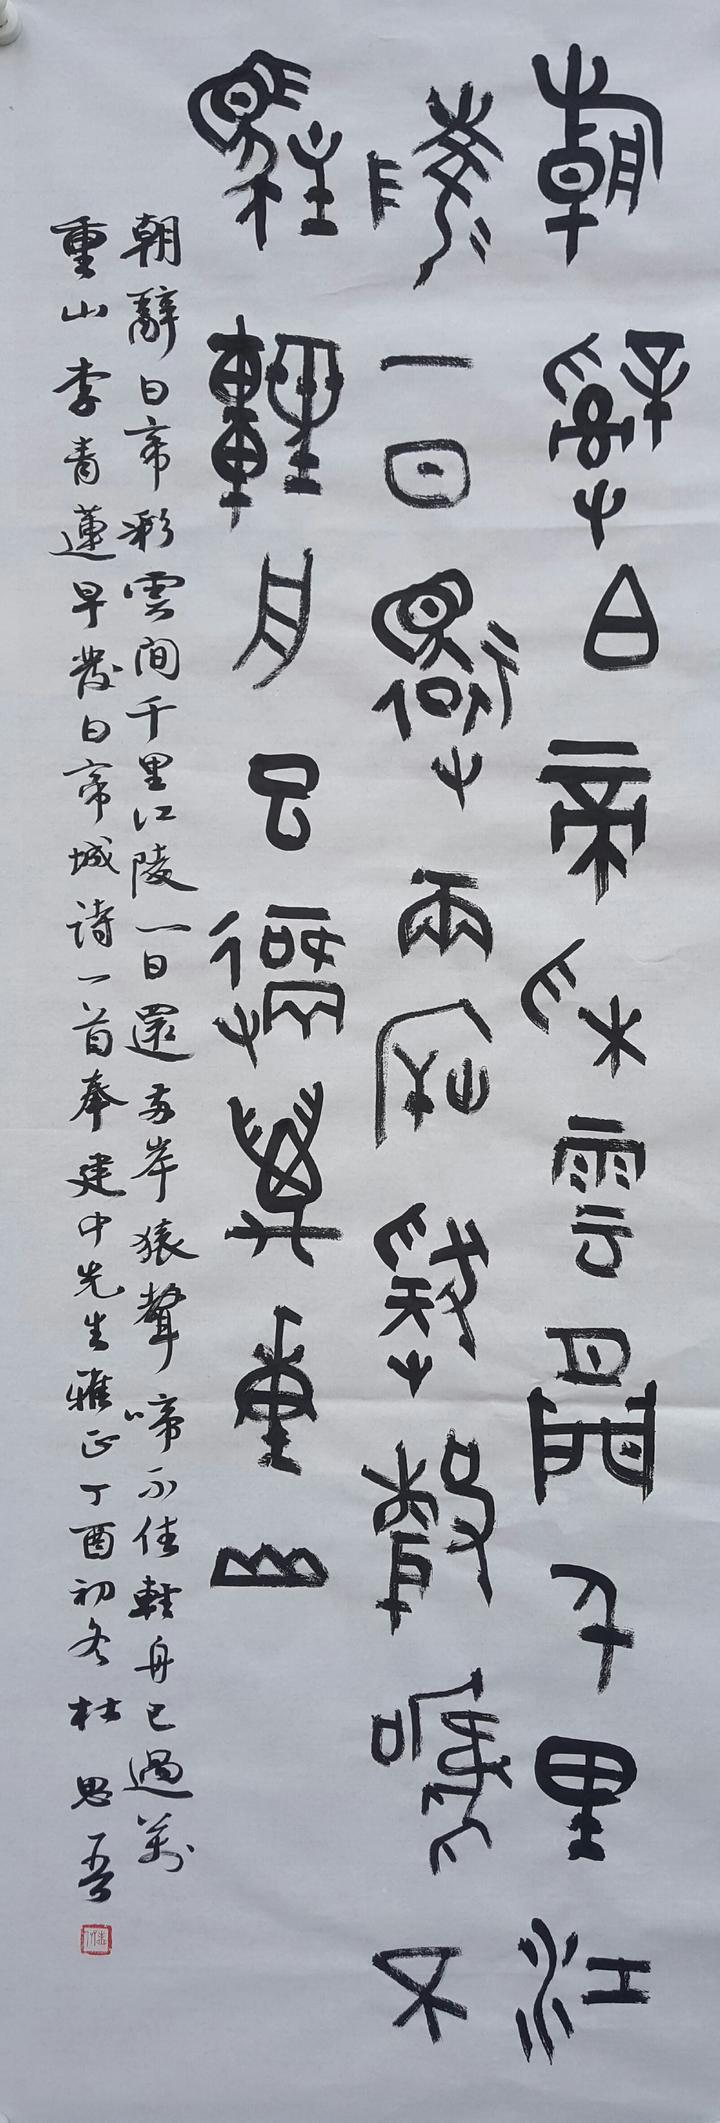 朝辭白帝彩雲間千里江
陵一日還兩岸猿聲啼不
駐輕舟已過萬重山
朝辭白帝彩雲間千里江陵一日還兩岸猿聲啼不住輕舟已過萬
重山李青蓮早發白帝城詩一首奉建中先生雅正丁酉初冬杜思吾